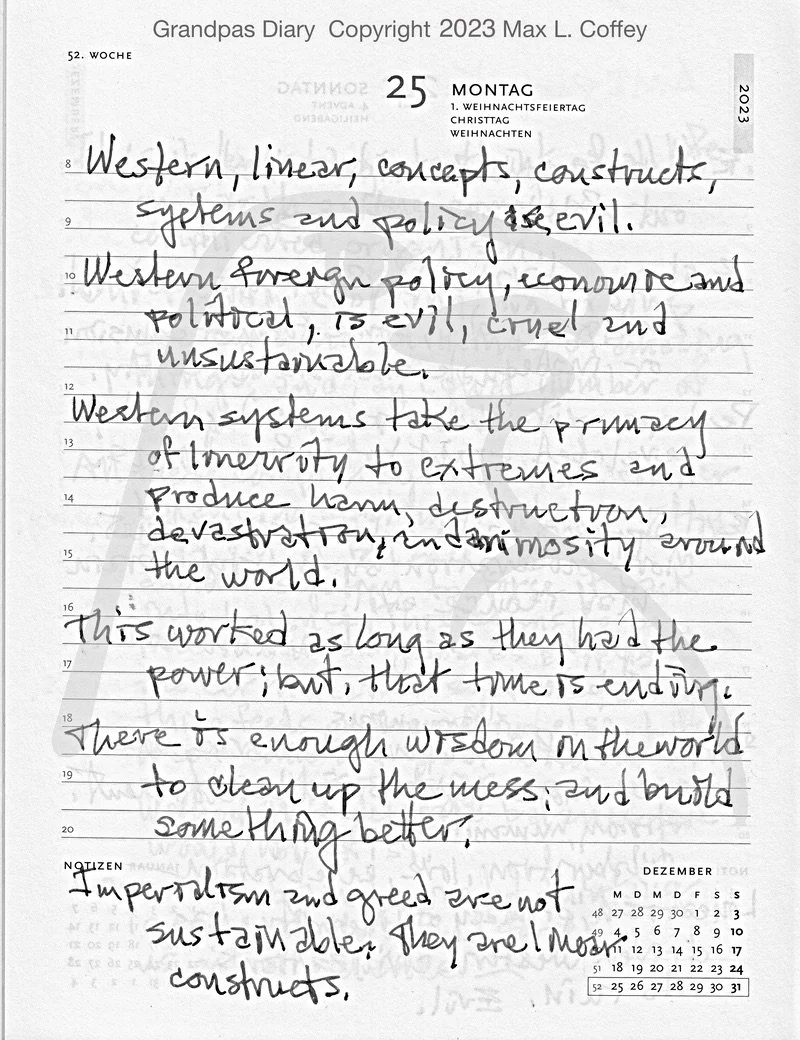 Grandpas Diary Copyright 2023 Max L. Coffey
52. WOCHE
25 MONTAG
1. WEIHNACHTSFEIERTAG
CHRISTTAG
WEIHNACHTEN
2023
8 Western, linear, concepts, constructs,
9 systems and policy is evil.
10 Western foreign policy, economic and
11 political, is evil, cruel and
unsustainable.
12
Western systems take the primacy
13 of linearity to extremes and
14 produce harm, destruction,
devastation, and animosity around
15 the world.
16 This worked as long as they had the
17 power; but, that time is ending.
18 There is enough wisdom in the world
19 to clean up the mess; and build
20 something better.
NOTIZEN
Imperialism and greed are not
sustainable; they are linear
constructs.
DEZEMBER
M D M D F S S
48 27 28 29 30 1 2 3
49 4 5 6 7 8 9 10
11 12 13 14 15 16 17
51 18 19 20 21 22 23 24
52 25 26 27 28 29 30 31